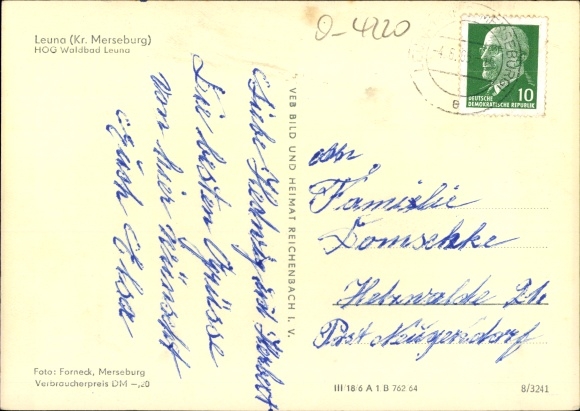 Leuna (Kr. Merseburg)
HOG Waldbad Leuna
O-4220
MERSEBURG
10
DEUTSCHE
DEMOKRATISCHE REPUBLIK
Liebe Hedwig und Herbert
Die besten Grüsse
von hier wünscht
Euch Elsa
VEB BILD UND HEIMAT REICHENBACH I. V.
An
Familie
Domschke
Post Neugersdorf
Foto: Forneck, Merseburg
Verbraucherpreis DM -,20
III 18 6 A 1 B 762 64
8/3241